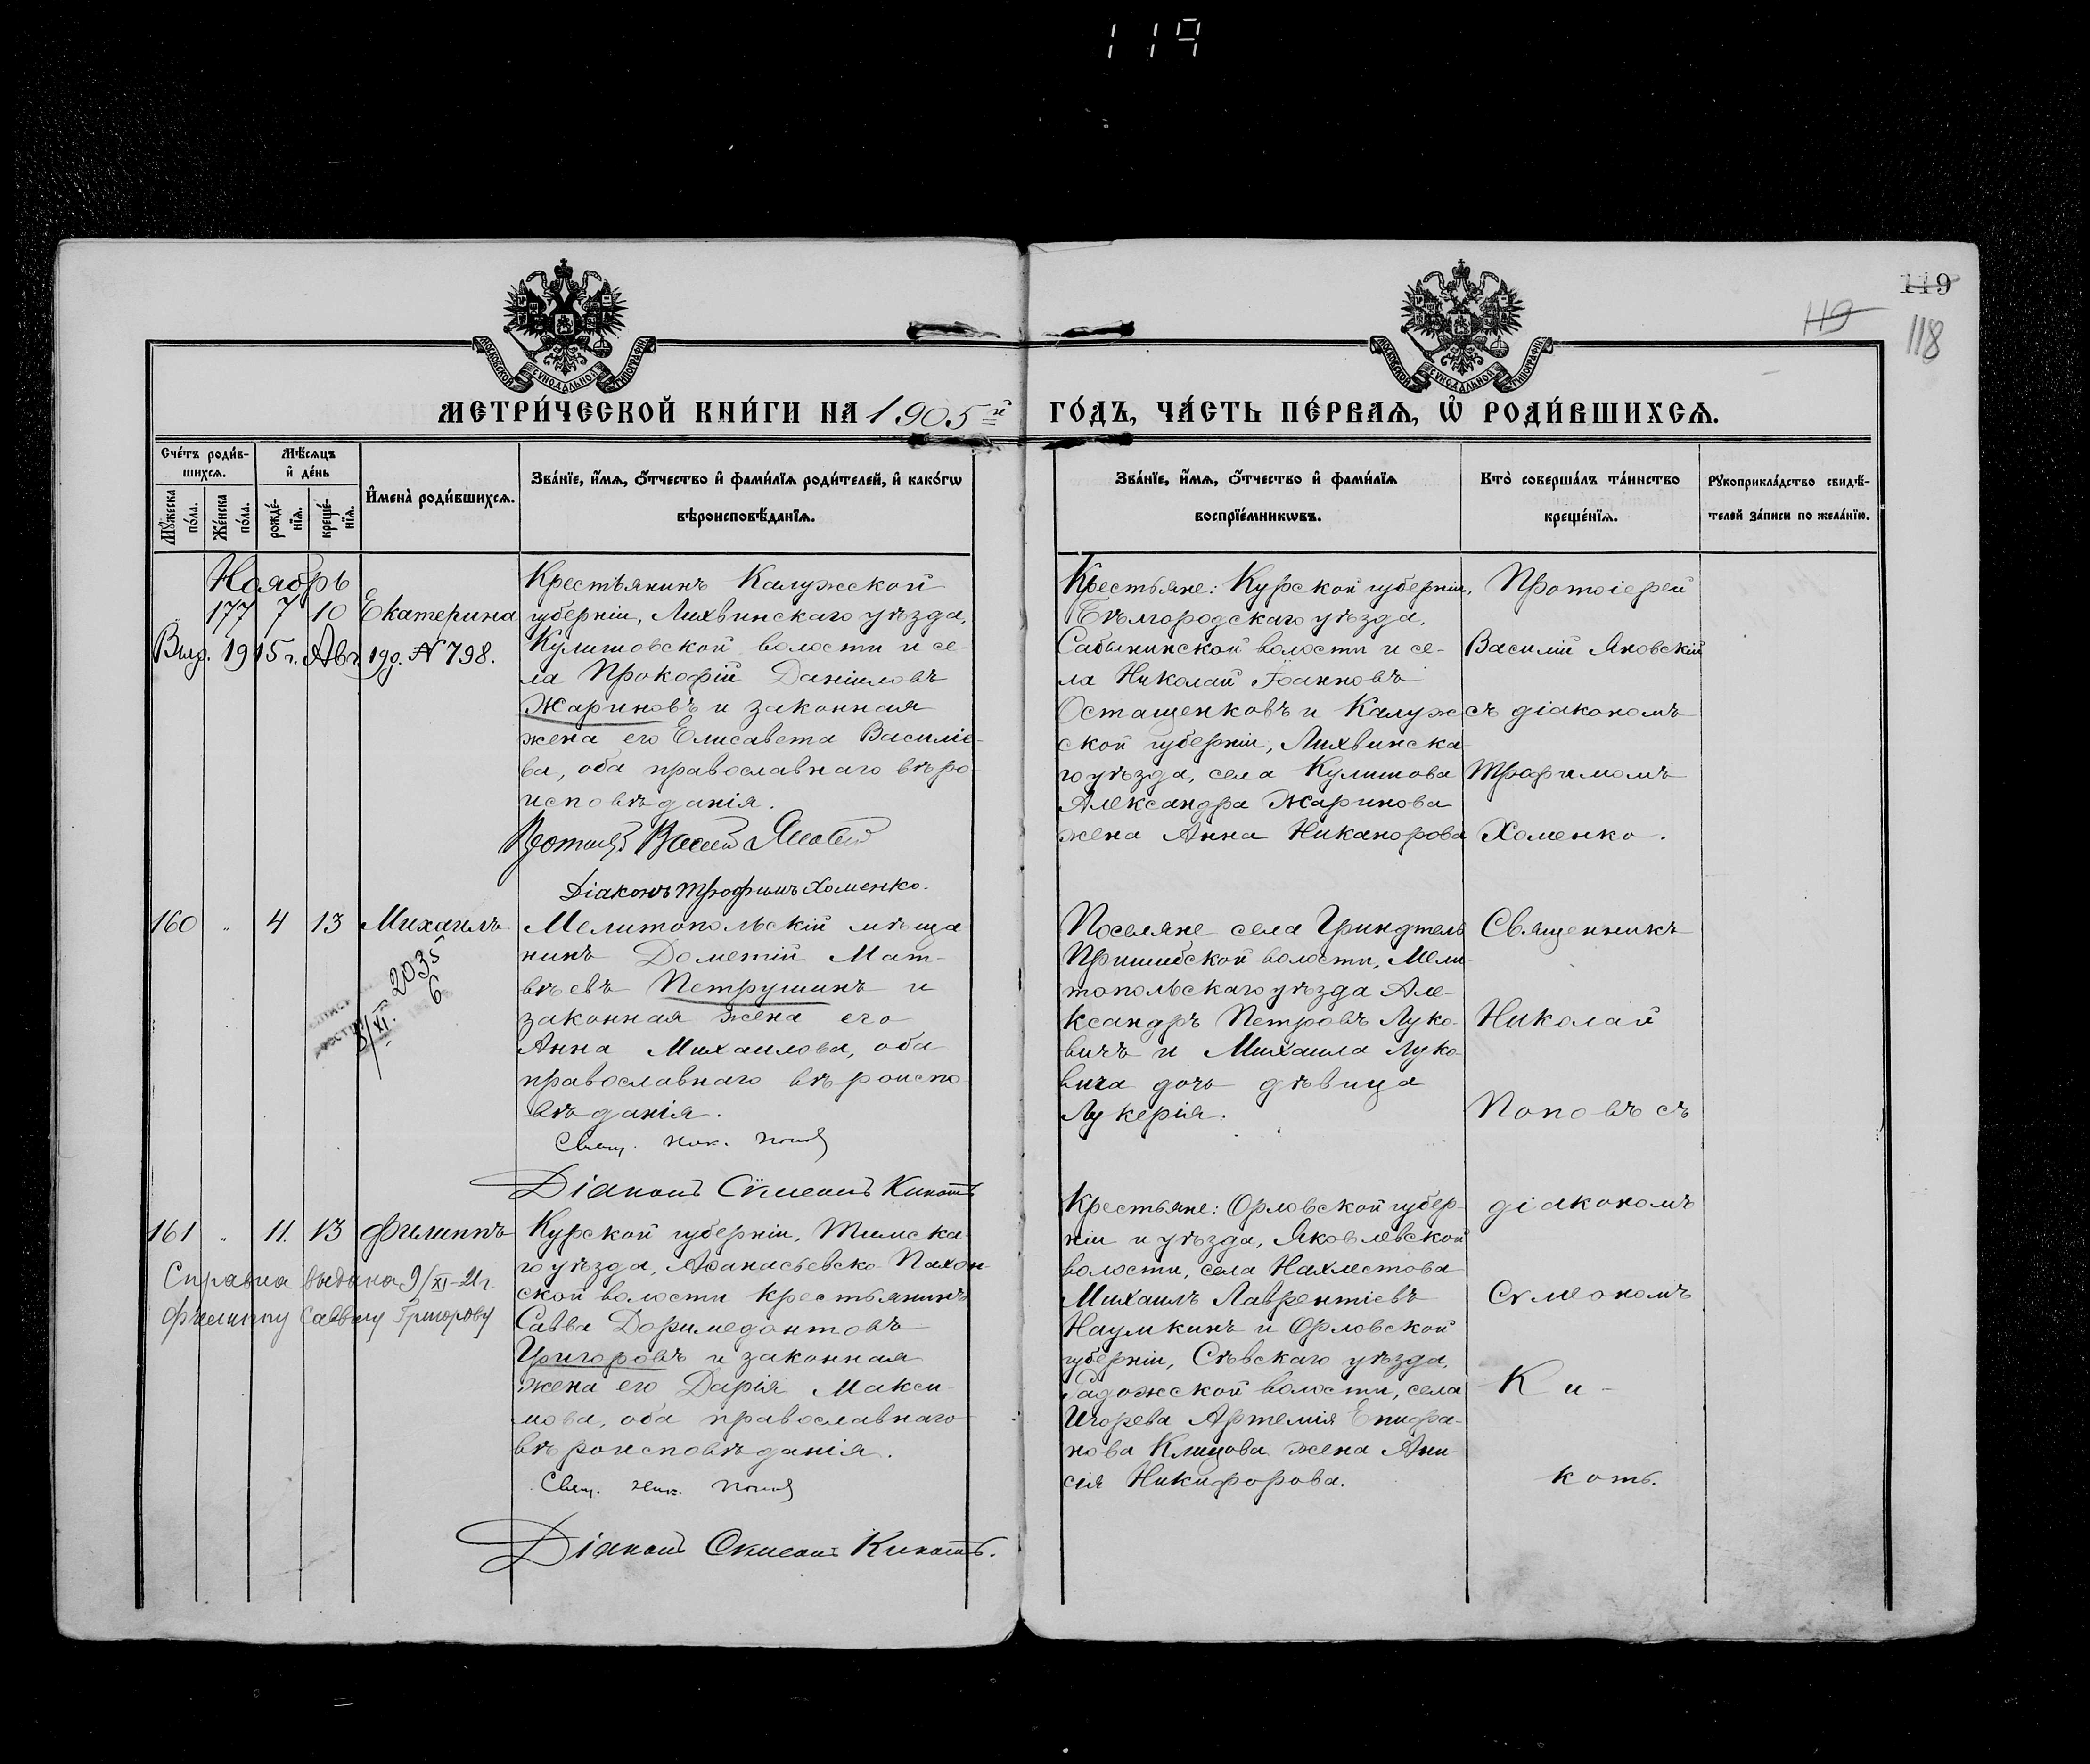 119
119
119
118
МОСКОВСКОЙ СѴНОДАЛЬНОЙ ТИПОГРАФІИ
МОСКОВСКОЙ СѴНОДАЛЬНОЙ ТИПОГРАФІИ
МЕТРИ́ЧЕСКОЙ КНИ́ГИ НА 1905й ГО́ДЪ, ЧА́СТЬ ПЕ́РВАѦ, Ѡ҆ РОДИ́ВШИХСѦ.
Сче́тъ роди́в-
шихсѧ.
Мꙋ́жеска
по́ла.
Же́нска
по́ла.
Мѣ́сѧцъ
и҆ де́нь
рожде́-
нїѧ.
креще́-
нїѧ.
И҆мена̀ роди́вшихсѧ.
Зва́нїе, и҆́мѧ, ѻ҆́тчество и҆ фами́лїѧ роди́телей, и҆ како́гѡ
вѣроисповѣ́данїѧ.
Зва́нїе, и҆́мѧ, ѻ҆́тчество и҆ фами́лїѧ
воспрїе́мникѡвъ.
Кто̀ соверша́лъ та́инство
креще́нїѧ.
Рꙋкоприкла́дство свидѣ́-
телей за́писи по жела́нїю.
Ноябрь
177 7 10 Екатерина
Выд. 1915 г. Авг 19д. № 798.
Крестьянинъ Калужской
губерніи, Лихвинскаго уѣзда,
Кулишовской волости и се-
ла Прокофій Даніиловъ
Жариновъ и законная
жена его Елисавета Василіе-
ва, оба православнаго вѣро-
исповѣданія.
Діаконъ Трофимъ Хоменко.
Крестьяне: Курской губерніи,
Бѣлгородскаго уѣзда,
Сабынинской волости и се-
ла Николай Іоанновъ
Остащенковъ и Калуж-
ской губерніи, Лихвинска-
го уѣзда, села Кулишова
Александра Жаринова
жена Анна Никанорова
Протоіерей
Василій Яновскій
съ діакономъ
Трофимомъ
Хоменко.
160 " 4 13 Михаилъ
2035
6
8/XI.
Мелитопольскій мѣща-
нинъ Дометій Мат-
вѣевъ Петрушинъ и
законная жена его
Анна Михаилова, оба
православнаго вѣроиспо-
вѣданія.
Свящ. Ник. Попов
Діаконъ Сѵмеонъ Кикоть
Поселяне села Гриндталь
Пришибской волости, Мели-
топольскаго уѣзда Але-
ксандръ Петровъ Луко-
вичъ и Михаила Луко-
вича дочь дѣвица
Лукерія.
Священникъ
Николай
Поповъ съ
діакономъ
Сѵмеономъ
Ки-
коть.
161 " 11. 13 Филиппъ
Справка выдана 9/XI-21 г.
Филиппу Саввичу Григорову
Курской губерніи, Тимска-
го уѣзда, Аѳанасьевско-Пахон-
ской волости крестьянинъ
Савва Доримедонтовъ
Григоровъ и законная
жена его Дарія Макси-
мова, оба православнаго
вѣроисповѣданія.
Свящ. Ник. Попов
Діаконъ Сѵмеонъ Кикоть.
Крестьяне: Орловской губер-
ніи и уѣзда, Яковлевской
волости, села Нахлестова
Михаилъ Лаврентіевъ
Наумкинъ и Орловской
губерніи, Сѣвскаго уѣзда,
Радожской волости, села
Игорева Артемія Епифа-
нова Клицова жена Ани-
сія Никифорова.